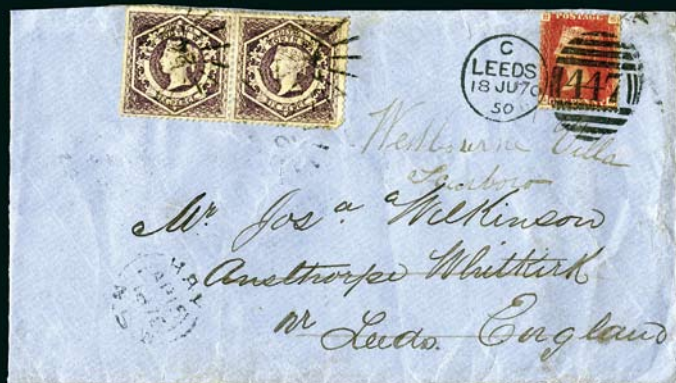 POSTAGE
C
LEEDS
18 JU 70
50
447
Westbourne Villa
Scarboro
Mr Josa Wilkinson
Austhorpe Whitkirk
nr Leeds. England